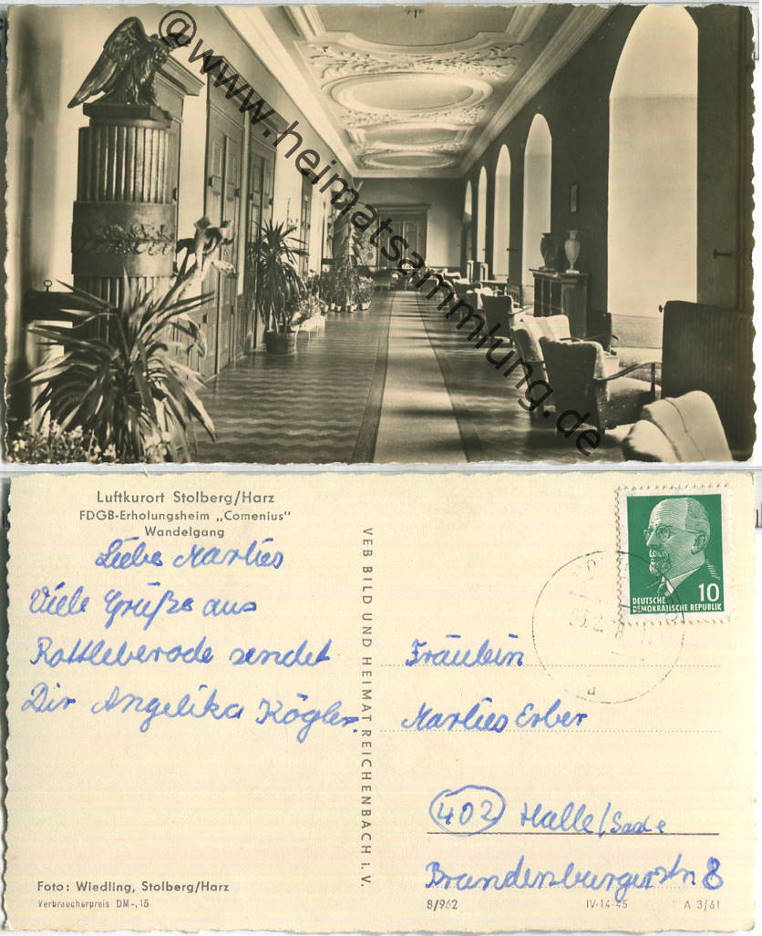 @www.heimatsammlung.de
Luftkurort Stolberg/Harz
FDGB-Erholungsheim „Comenius"
Wandelgang
Liebe Marlies
Viele Grüße aus
Rottleberode sendet
Dir Angelika Kögler.
VEB BILD UND HEIMAT REICHENBACH i. V.
10
DEUTSCHE
DEMOKRATISCHE REPUBLIK
a
Fräulein
Marlies Erber
402 Halle/Saale
Brandenburgerstr 8
Foto: Wiedling, Stolberg/Harz
Verbraucherpreis DM -,15
8/962 IV-14-45 A 3/61